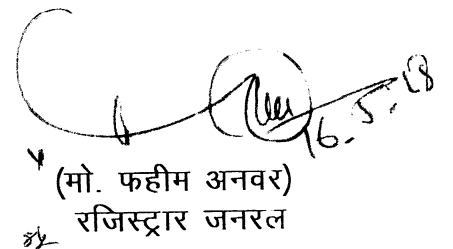 16.5.18
(मो. फहीम अनवर)
रजिस्ट्रार जनरल